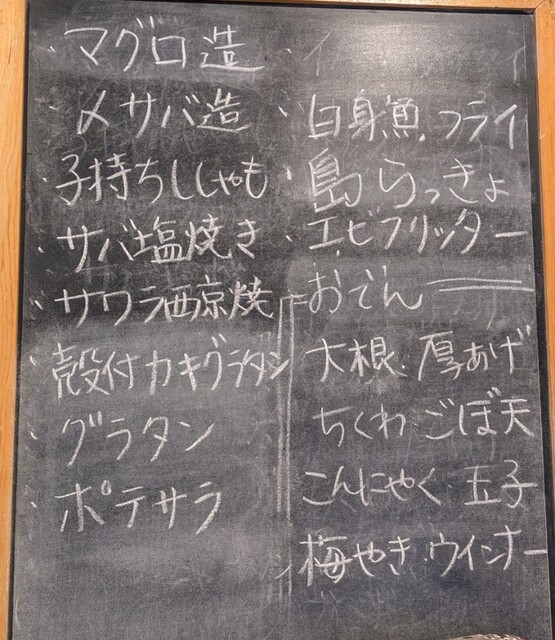 ・マグロ造
・〆サバ造
・子持ちししゃも
・サバ塩焼き
・サワラ西京焼
・殻付カキグラタン
・グラタン
・ポテサラ
・白身魚フライ
・島らっきょ
・エビフリッター
おでん
大根・厚あげ
ちくわ・ごぼ天
こんにゃく・玉子
梅やき・ウインナー